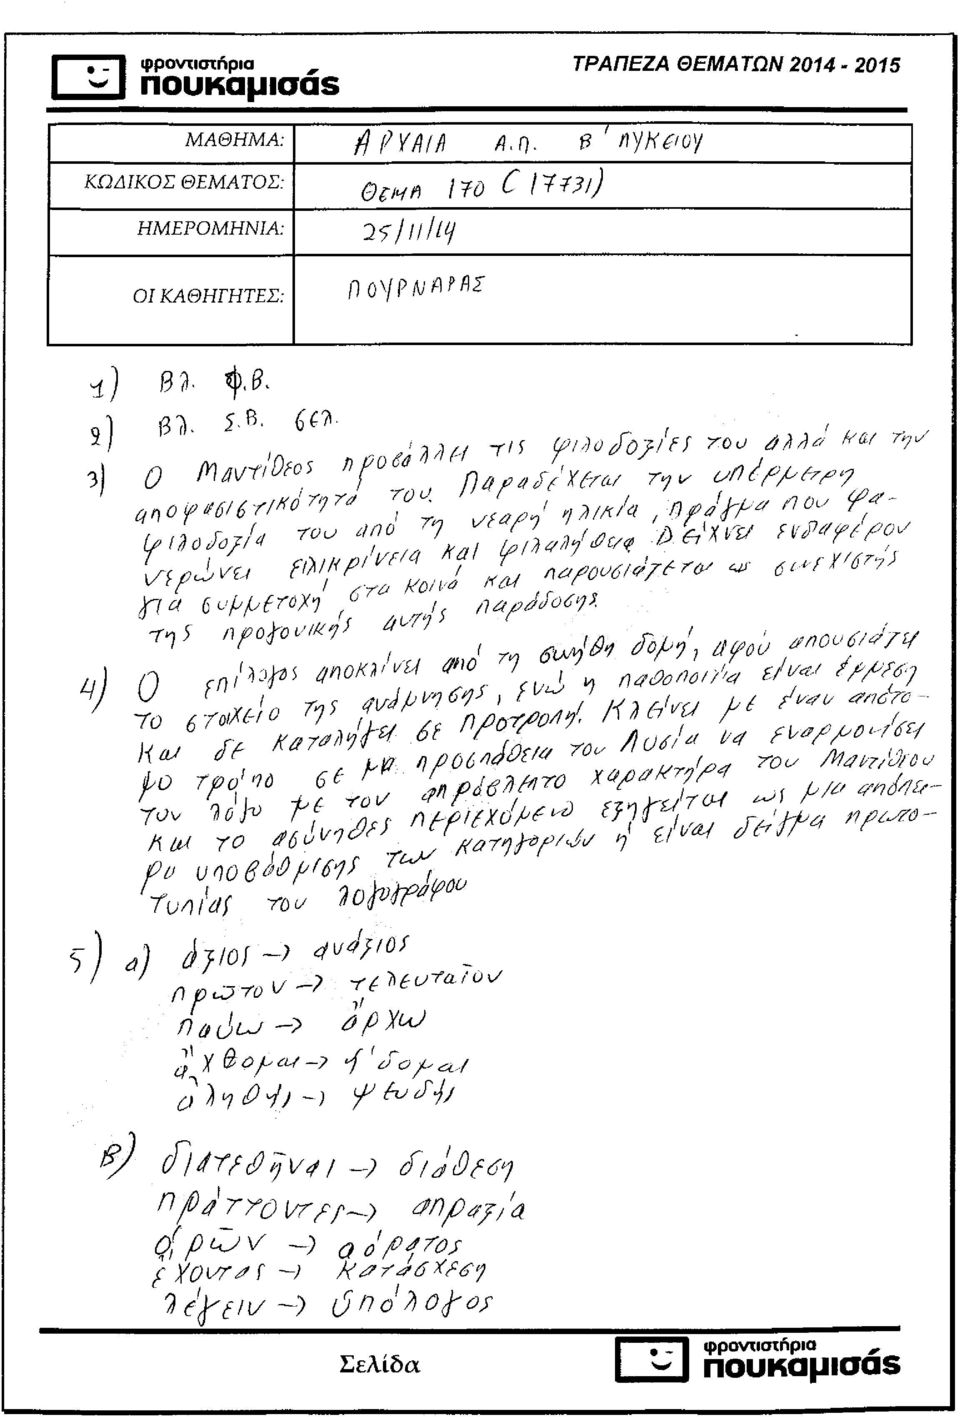 φροντιστήρια
πουκαμισάς
ΤΡΑΠΕΖΑ ΘΕΜΑΤΩΝ 2014 - 2015
ΜΑΘΗΜΑ: ΑΡΧΑΙΑ Α.Π. Β' ΛΥΚΕΙΟΥ
ΚΩΔΙΚΟΣ ΘΕΜΑΤΟΣ: ΘΕΜΑ 170 (17731)
ΗΜΕΡΟΜΗΝΙΑ: 25/11/14
ΟΙ ΚΑΘΗΓΗΤΕΣ: ΠΟΥΡΝΑΡΑΣ
1) Βλ. Φ.Β.
2) Βλ. Σ.Β. σελ.
3) Ο Μαντίθεος προβάλλει τις φιλοδοξίες του αλλά και την
αποφασιστικότητά του. Παραδέχεται την υπέρμετρη
φιλοδοξία του από τη νεαρή ηλικία, πράγμα που φα-
νερώνει ειλικρίνεια και φιλαλήθεια. Δείχνει ενδιαφέρον
για συμμετοχή στα κοινά και παρουσιάζεται ως συνεχιστής
της προγονικής αυτής παράδοσης.
4) Ο επίλογος αποκλίνει από τη συνήθη δομή, αφού απουσιάζει
το στοιχείο της ανάμνησης, ενώ η παθοποιΐα είναι έμμεση
και δε καταλήγει σε προτροπή. Κλείνει με έναν απότο-
μο τρόπο σε μια προσπάθεια του Λυσία να εναρμονίσει
τον λόγο με τον απρόβλεπτο χαρακτήρα του Μαντίθεου
και το ασύνηθες περιεχόμενο εξηγείται ως μια απόπει-
ρα υποβάθμισης των κατηγοριών ή είναι δείγμα πρωτο-
τυπίας του λογογράφου
5) α) ἄξιος -> ἀνάξιος
πρῶτον -> τελευταῖον
παύω -> ἄρχω
ἄχθομαι -> ἥδομαι
ἀληθής -> ψευδής
β) διατεθῆναι -> διάθεση
πράττοντες -> απραξία
ὁρῶν -> αόρατος
ἔχοντας -> κατάσχεση
λέγειν -> υπόλογος
Σελίδα
φροντιστήρια
πουκαμισάς